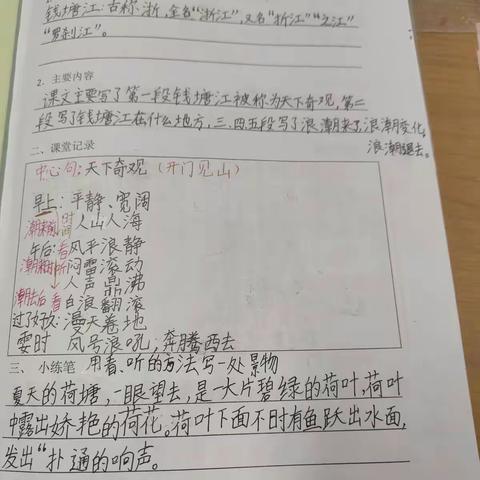 钱塘江:古称浙,全名“浙江”,又名“折江”“之江”
“罗刹江”。
2. 主要内容
课文主要写了第一段钱塘江被称为天下奇观,第二
段写了钱塘江在什么地方,三、四五段写了浪潮来了,浪潮变化,
浪潮退去。
二、课堂记录
中心句:天下奇观(开门见山)
早上:平静、宽阔
潮来前 时间 人山人海
午后:看风平浪静
潮来时 听 闷雷滚动
人声鼎沸
潮去后 看 白浪翻滚
过了好久:漫天卷地
霎时 风号浪吼,奔腾西去
三、 小练笔 用看、听的方法写一处景物
夏天的荷塘,一眼望去,是一大片碧绿的荷叶,荷叶
中露出娇艳的荷花。荷叶下面不时有鱼跃出水面,
发出“扑通的响声。